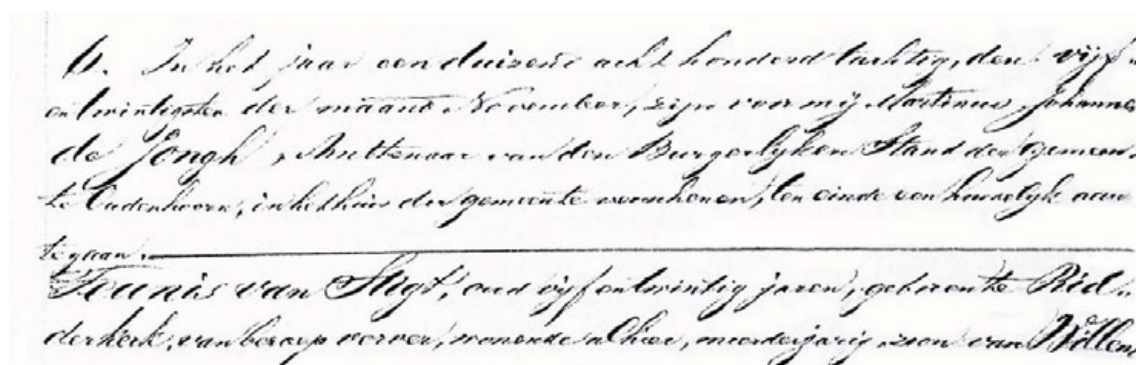 6. In het jaar een duizend acht honderd tachtig, den vijf
entwintigsten der maand November, zijn voor mij Martinus Johannes
de Jongh, Ambtenaar van den Burgerlijken Stand der Gemeen-
te Oudenhoorn, in het huis der gemeente verschenen, ten einde een huwelijk aan
te gaan.
Teunis van Sligt, oud vijfentwintig jaren, geboren te Rid-
derkerk, van beroep verver, wonende alhier, meerderjarig zoon van Willem